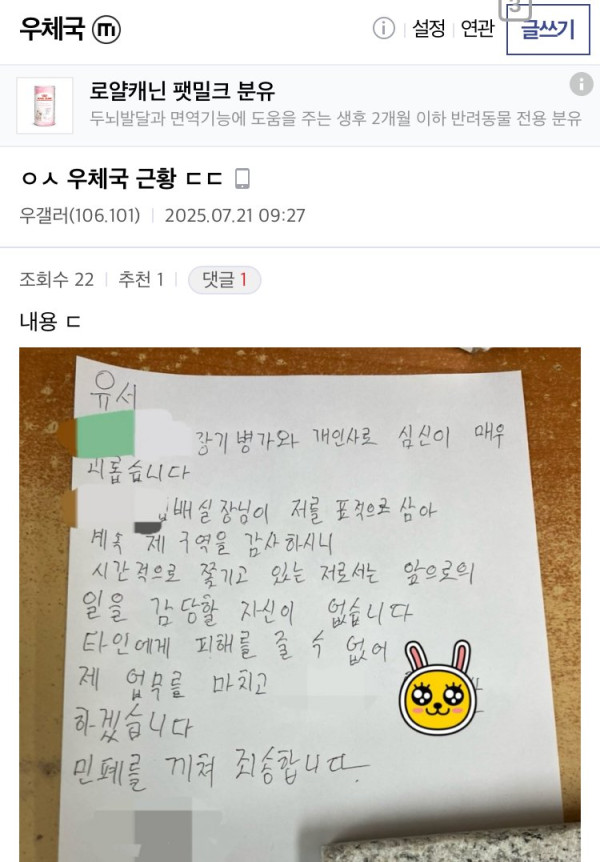 우체국 m
설정 연관 글쓰기
3
로얄캐닌 팻밀크 분유
두뇌발달과 면역기능에 도움을 주는 생후 2개월 이하 반려동물 전용 분유
ㅇㅅ 우체국 근황 ㄷㄷ
우갤러(106.101) 2025.07.21 09:27
조회수 22 추천 1 댓글 1
내용 ㄷ
유서
장기병가와 개인사로 심신이 매우
괴롭습니다
배실장님이 저를 표적으로 삼아
계속 제 구역을 감사하시니
시간적으로 쫓기고 있는 저로서는 앞으로의
일을 감당할 자신이 없습니다
타인에게 피해를 줄 수 없어
제 업무를 마치고
하겠습니다
민폐를 끼쳐 죄송합니다.